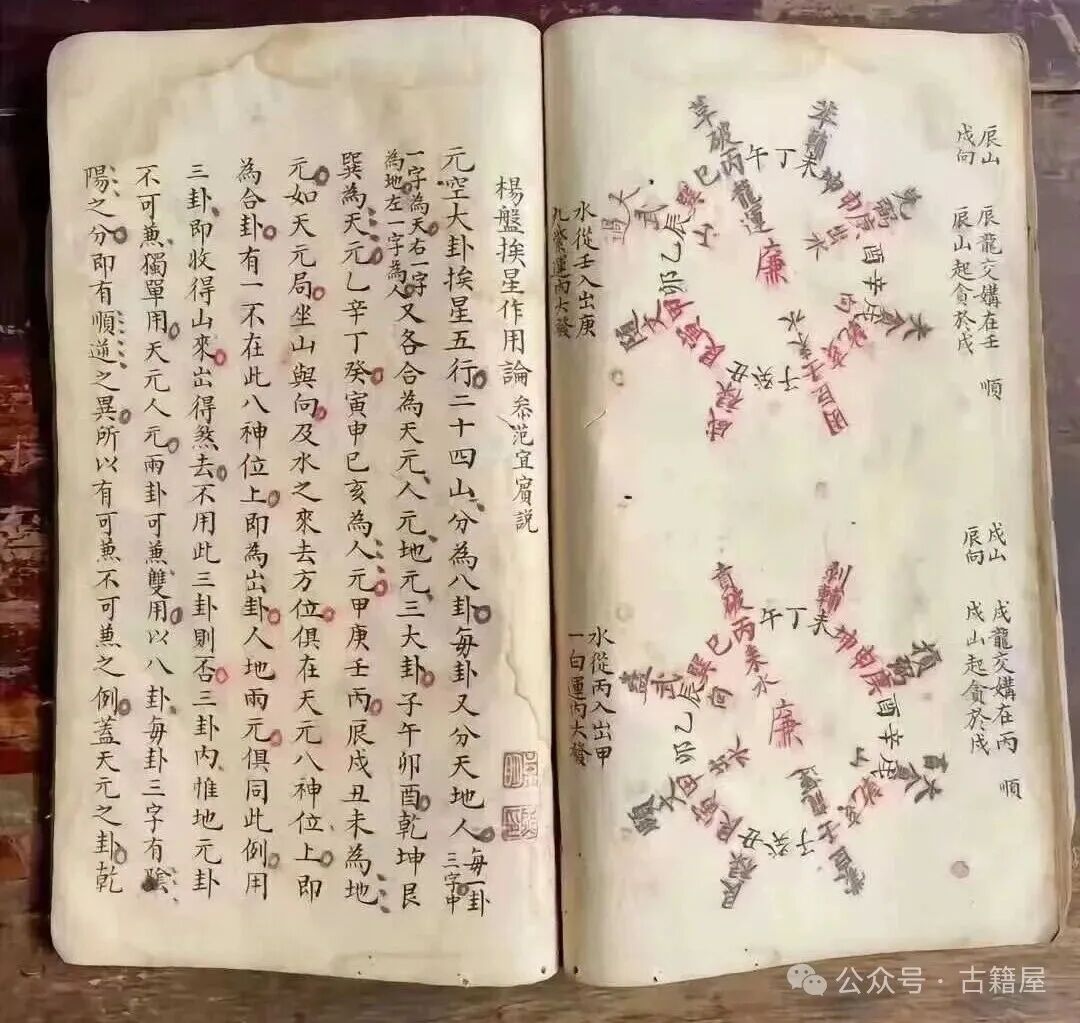 辰山
戌向
辰龍交媾在壬 順
辰山起貪於戌
午丁未
巳丙龍運
廉
酉辛戌
卯乙辰山
子癸丑
水從壬入出庚
九紫運內大發
戌山
辰向
戌龍交媾在丙 順
戌山起貪於戌
午丁未
巳丙來水
廉
酉辛戌
卯乙辰
子癸丑
水從丙入出甲
一白運內大發
楊盤挨星作用論 叅范宜賓説
元空大卦挨星五行二十四山分為八卦每卦又分天地人每一卦三字中
一字為天右一字為地左一字為人又各合為天元人元地元三大卦子午卯酉乾坤艮
巽為天元乙辛丁癸寅申巳亥為人元甲庚壬丙辰戌丑未為地
元如天元局坐山與向及水之來去方位俱在天元八神位上即
為合卦有一不在此八神位上即為出卦人地兩元俱同此例用
三卦即收得山來出得煞去不用此三卦則否三卦内惟地元卦
不可兼獨單用天元人元兩卦可兼雙用以八卦每卦三字有陰
陽之分即有順逆之異所以有可兼不可兼之例蓋天元之卦乾
公众号·古籍屋